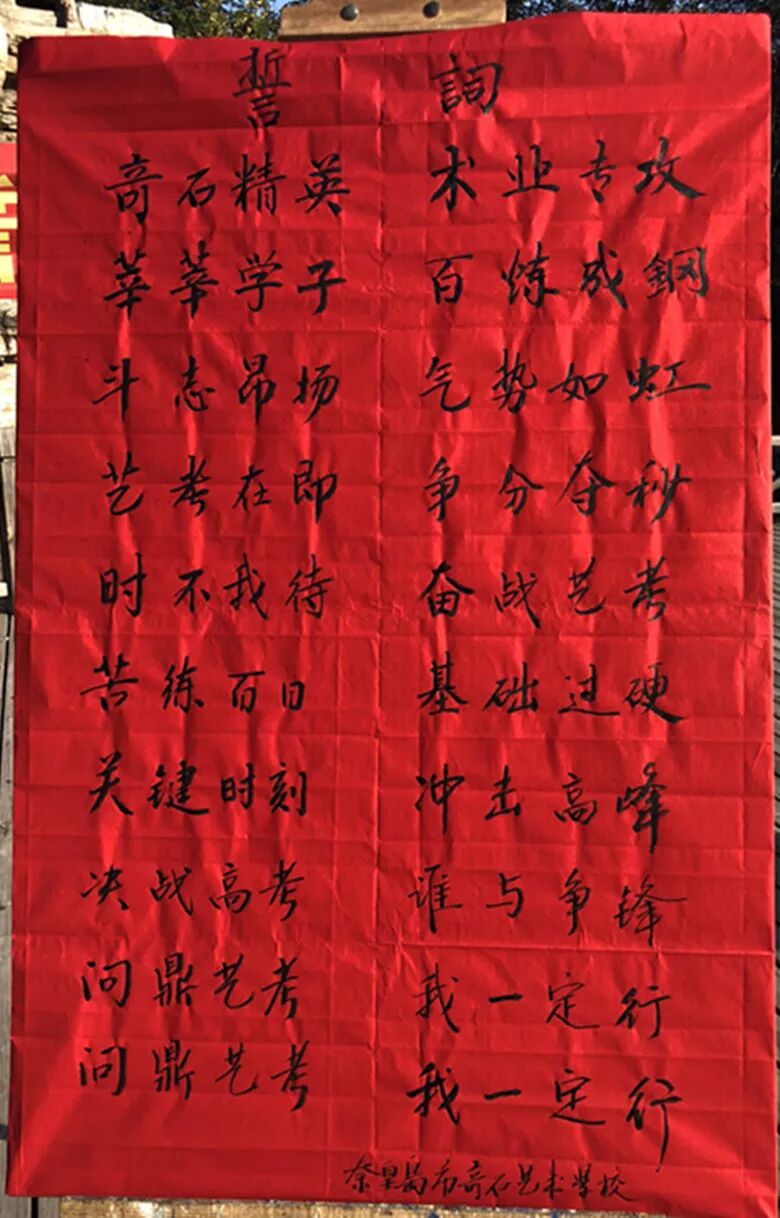 誓 詞
奇石精英 术业专攻
莘莘学子 百炼成鋼
斗志昂场 气势如虹
艺考在即 争分夺秒
时不我待 奋战艺考
苦练百日 基础过硬
关键时刻 冲击高峰
决战高考 谁与争锋
问鼎艺考 我一定行
问鼎艺考 我一定行
秦皇岛市奇石艺术学校